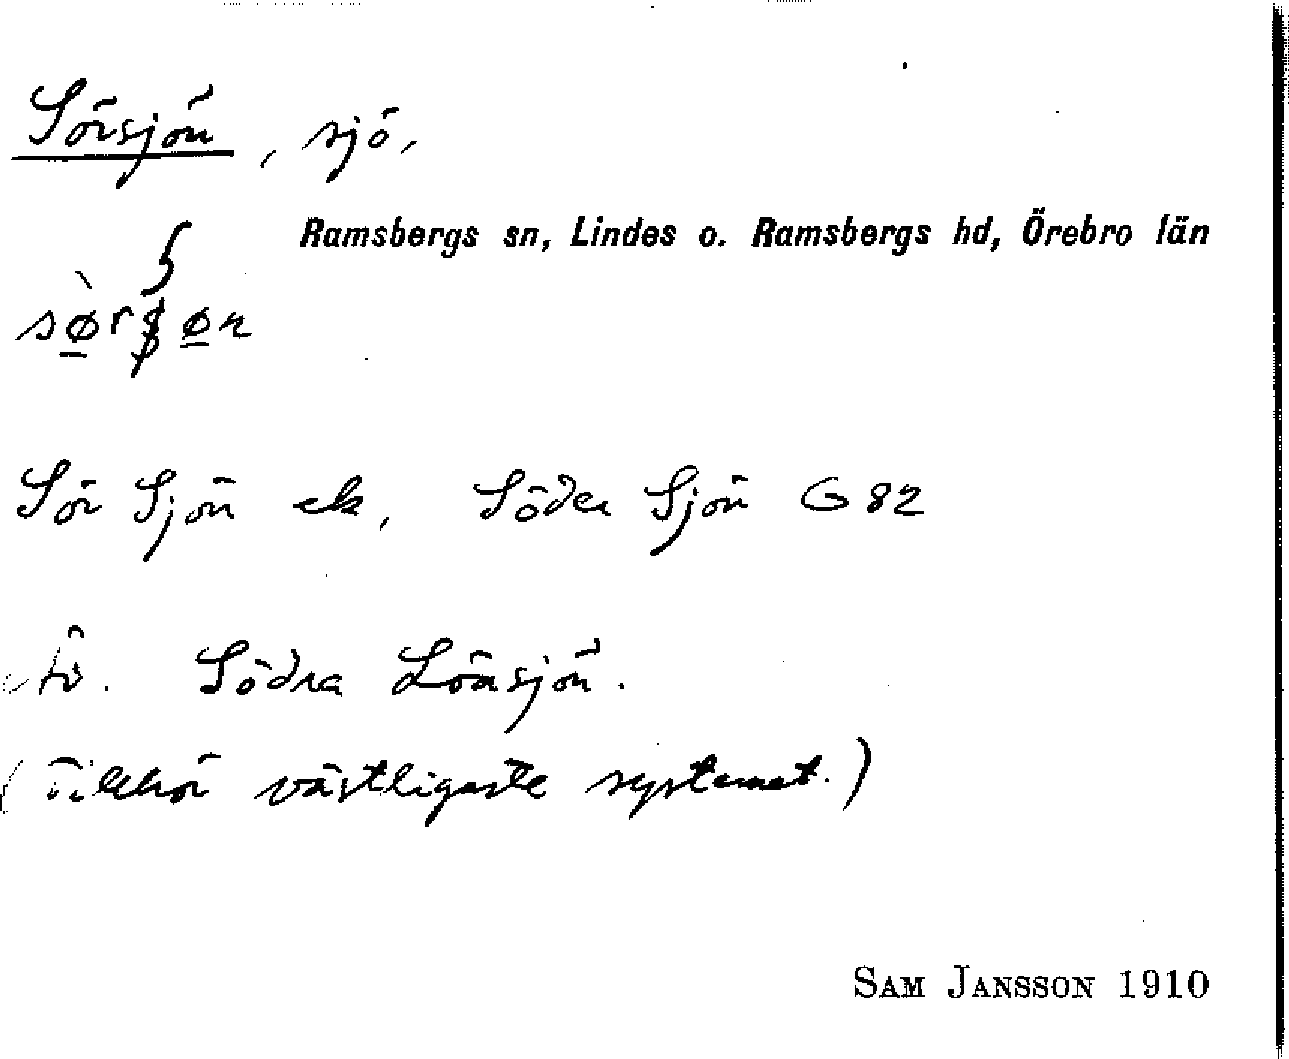 Sörsjön, sjö,
Ramsbergs sn, Lindes o. Ramsbergs hd, Örebro län
Sör Sjön ek, Söder Sjön G 82
Södra Lönsjön.
(Tillhör västligaste systemet.)
SAM JANSSON 1910